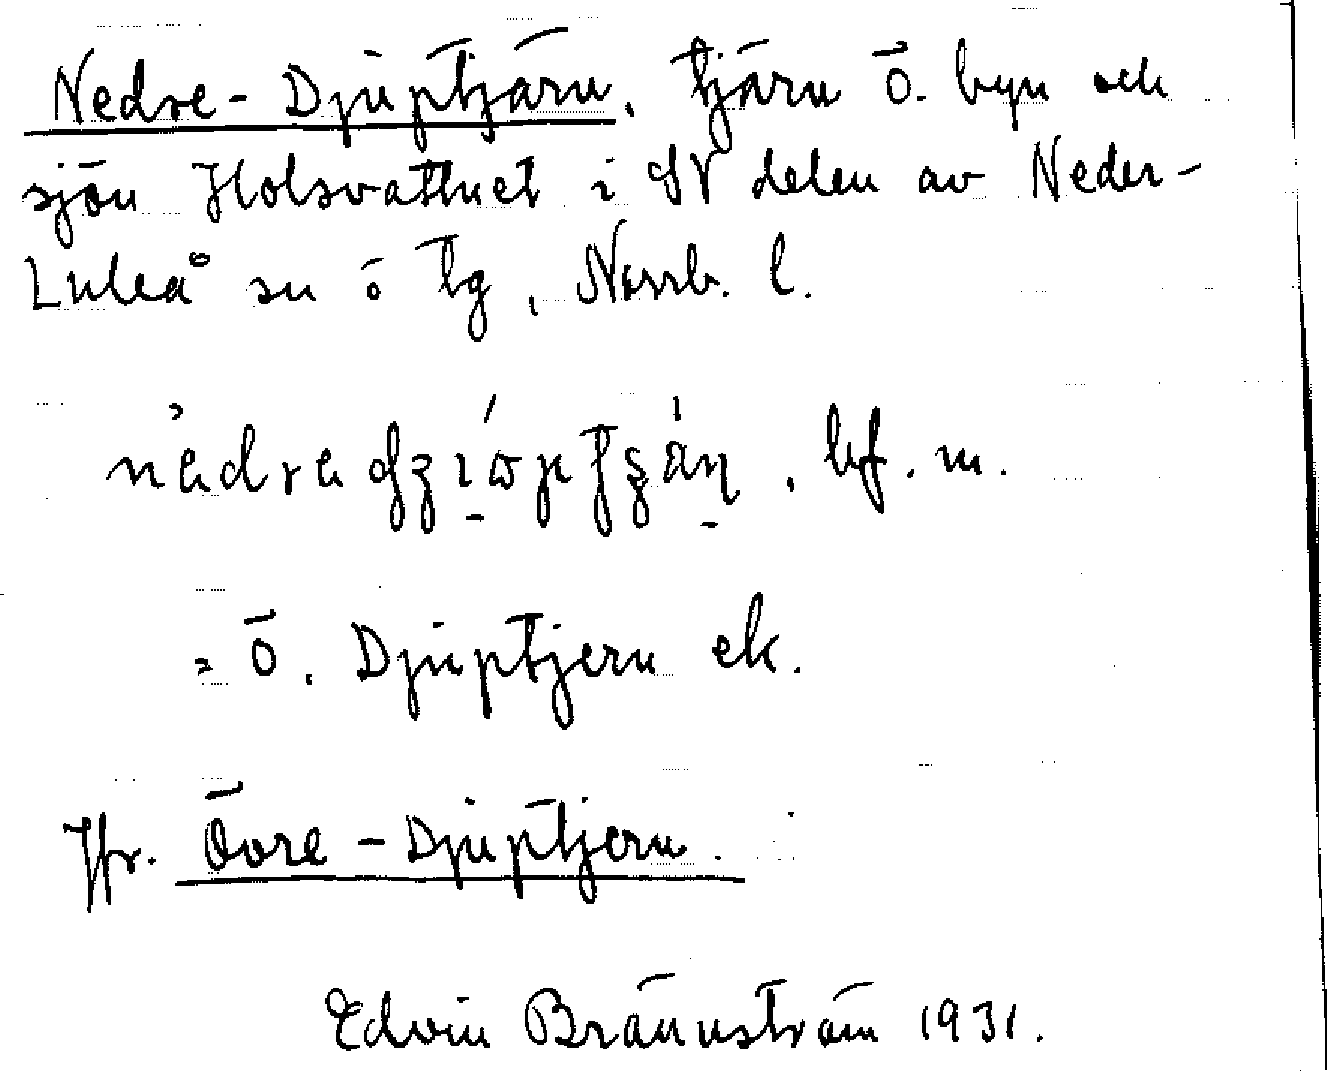 Nedre-Djuptjärn, tjärn ö. byn och
sjön Holsvattnet i SV delen av Neder-
Luleå sn o tg, Norrb. l.
bf. m.
= Ö. Djuptjern ek.
Jfr. Övre-Djuptjern.
Edvin Brännström 1931.